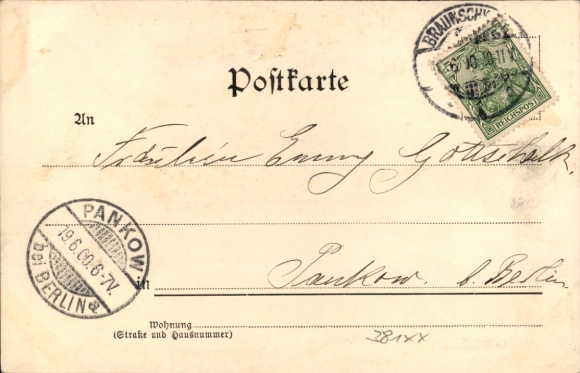 BRAUNSCHW
REICHSPOST
Postkarte
An
Fräulein Emmy Gottschalk,
PANKOW
19.6.00.6-7V.
bei BERLIN
in Pankow. b. Berlin
Wohnung
(Straße und Hausnummer)
381xx